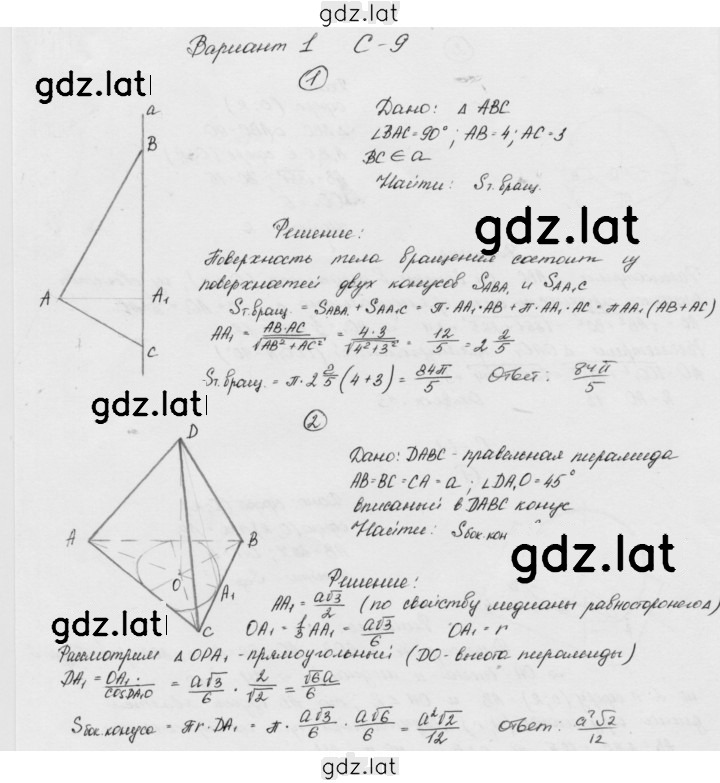 gdz.lat
Вариант 1 С-9
gdz.lat
1
a
B
A
A₁
C
Дано: Δ ABC
∠BAC=90°; AB=4; AC=3
BC∈a
Найти: Sт.вращ.
gdz.lat
Решение:
Поверхность тела вращения состоит из
поверхностей двух конусов SABA₁ и SAA₁C
Sт.вращ. = SABA₁+SAA₁C = π·AA₁·AB+π·AA₁·AC=πAA₁(AB+AC)
AA₁ = AB·AC/√(AB²+AC²) = 4·3/√(4²+3²) = 12/5 = 2 2/5
Sт.вращ. = π·2 2/5 (4+3) = 84π/5 Ответ: 84π/5
gdz.lat
2
D
A
B
O
A₁
C
Дано: DABC-правельная пирамида
AB=BC=CA=a; ∠DA₁O=45°
вписаный в DABC конус
Найти: Sбок.кон
gdz.lat
Решение:
AA₁ = a√3/2 (по свойству медианы равносторонего Δ)
OA₁ = 1/3 AA₁ = a√3/6 OA₁=r
Рассмотрим Δ ODA₁-прямоугольный (DO-высота пирамиды)
DA₁ = OA₁/cosDA₁O = a√3/6 · 2/√2 = √6a/6
Sбок.конуса = πr·DA₁ = π · a√3/6 · a√6/6 = a²√2/12 Ответ: a²√2/12
gdz.lat